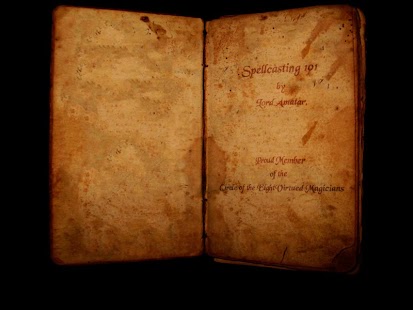 Spellcasting 101
by
Lord Avatar,
Proud Member
of the
Circle of the Eight Virtued Magicians